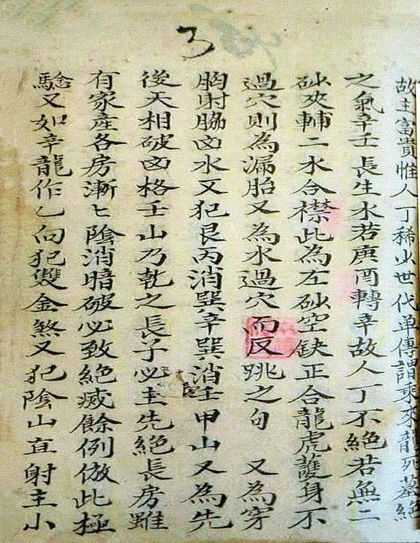 3
故主富貴惟人丁稀少世代單傳謂乘來龍死墓絕
之氣辛壬長生水若庚酉轉辛故人丁不絕若無二
砂夾輔二水合襟此為左砂空缺正合龍虎護身不
過穴則為漏胎又為水過穴而反跳之句 又為穿
胸射脇凶水又犯艮丙消巽辛巽消壬甲山又為先
後天相破凶格壬山乃乾之長子必主先絕長房雖
有家產各房漸匕陰消暗破必致絕滅餘例倣此極
驗又如辛龍作乙向犯雙金煞又犯陰山直射主小